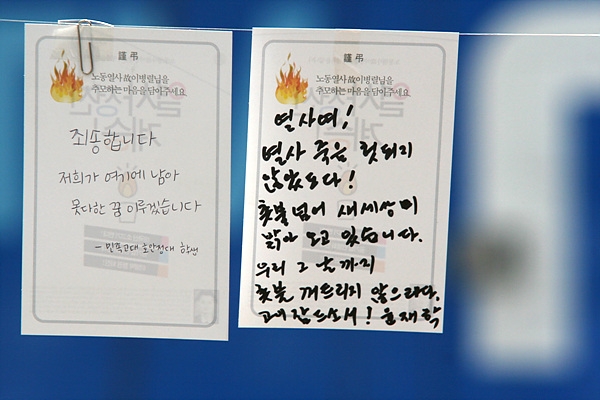 謹弔
노동열사 故이병렬님을
추모하는 마음을 담아주세요
죄송합니다
저희가 여기에 남아
못다한 꿈 이루겠습니다
- 민족고대 문과대 학생
謹弔
노동열사 故이병렬님을
추모하는 마음을 담아주세요
열사여!
열사 죽음 헛되지
않았도다!
촛불 넘어 새세상이
밝아 오고 있습니다.
우리 그 날까지
촛불 꺼뜨리지 않으리다.
고이 잠드소서! 윤재학